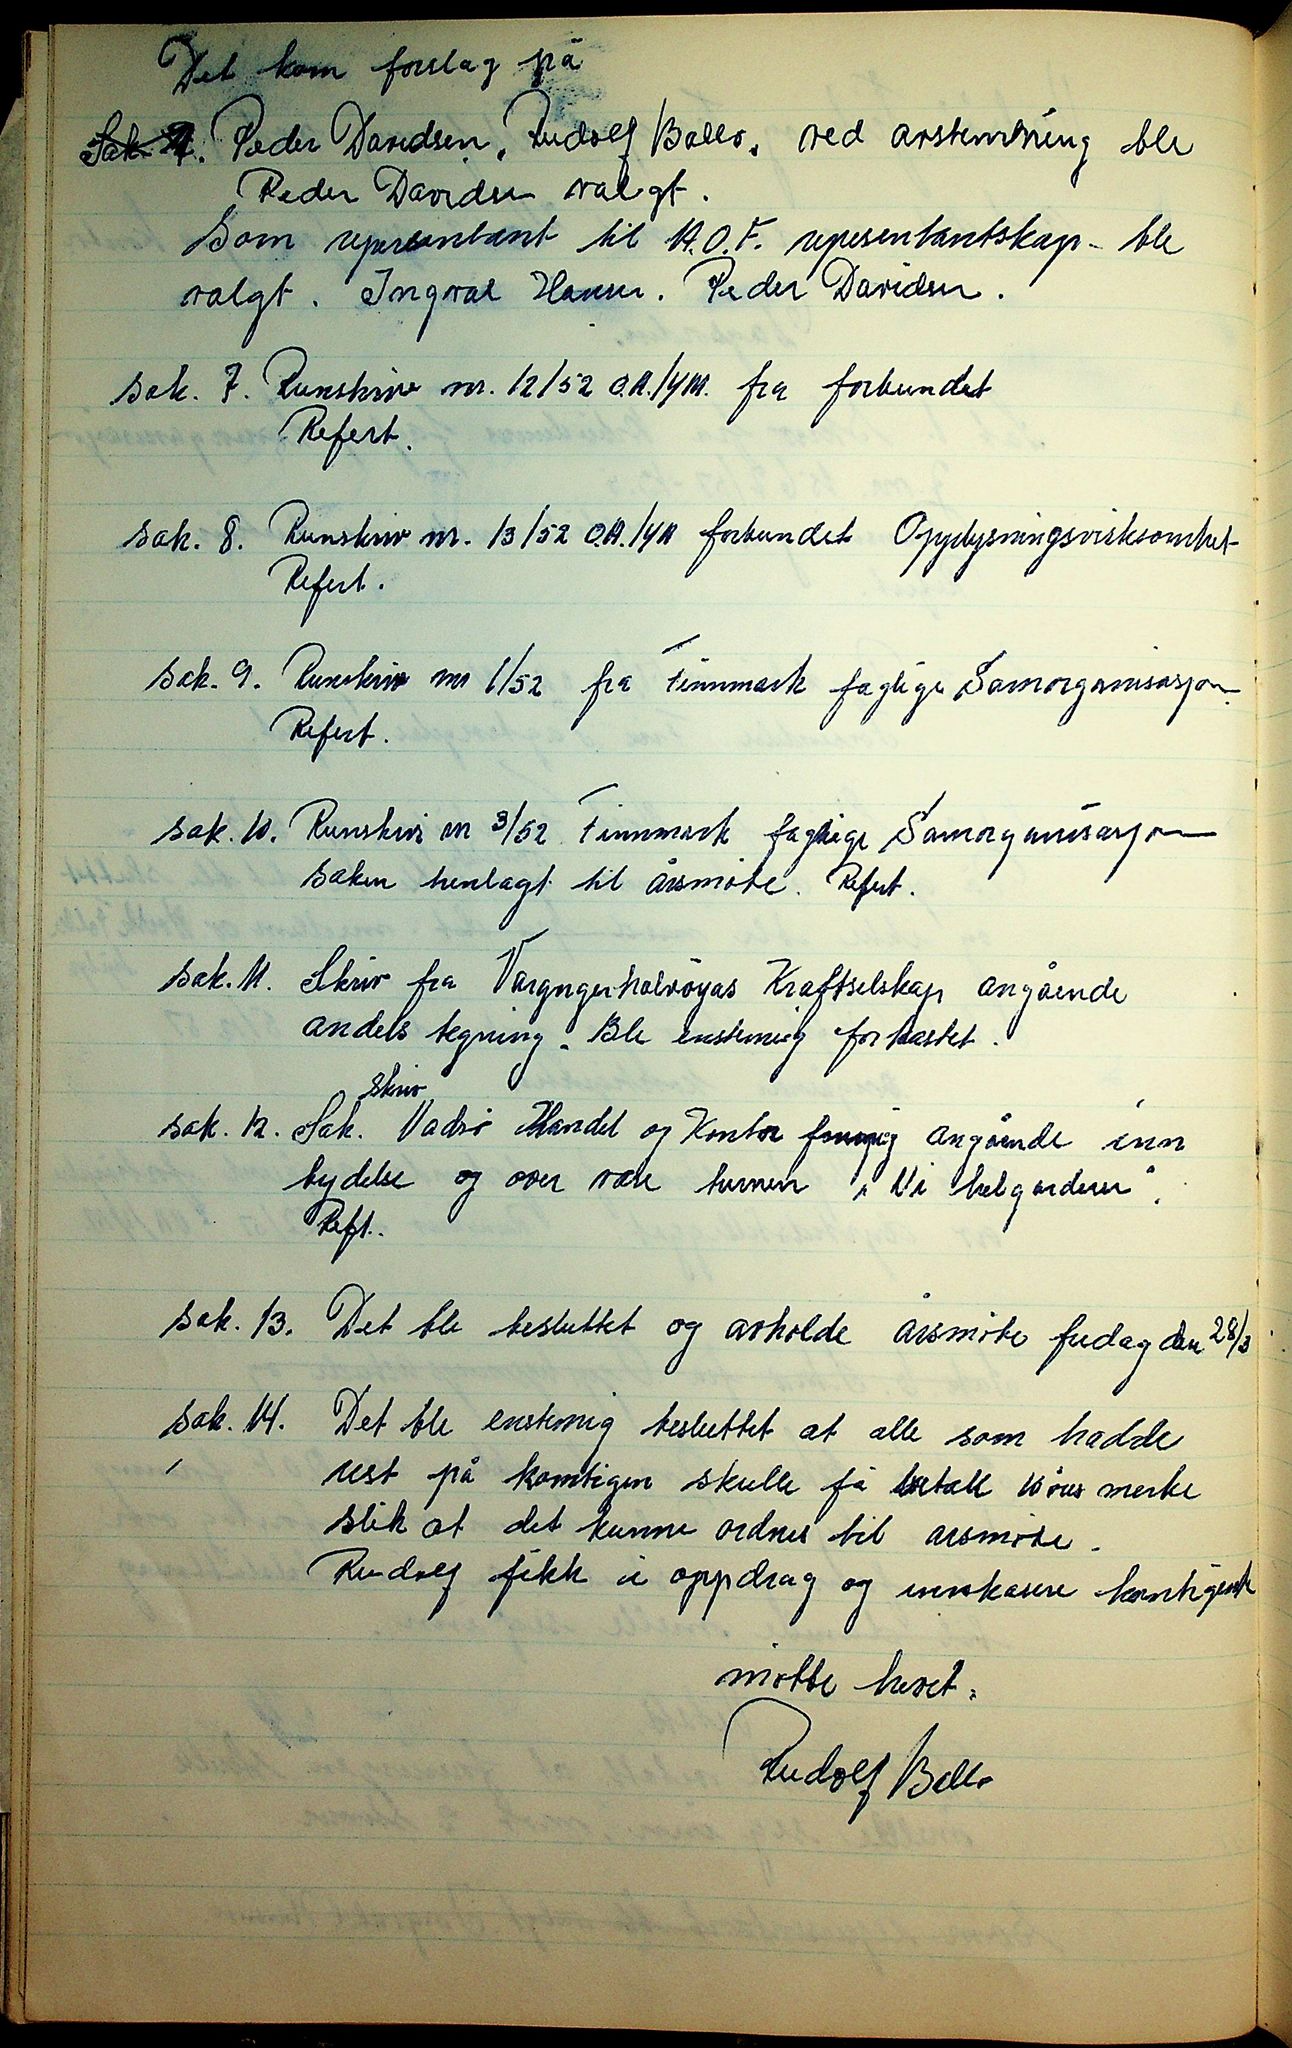 Det kom forslag på
Sak 7. Peder Davidsen. Rudolf Ballo. ved avstemning ble
Peder Davidsen valgt.
Som representant til A.O.F. representantskap- ble
valgt. Ingval Hansen. Peder Davidsen.
sak. 7. Runskriv nr. 12/52 O.A./YM. fra forbundet
Refert.
sak. 8. Runskriv nr. 13/52 O.A./YM forbundet Opplysningsvirksomhet
Refert.
sak. 9. Runskriv nr 1/52 fra Finnmark faglige Samorganisasjon.
Refert.
sak. 10. Runskriv nr 3/52 Finnmark faglige Samorganisasjon
saken henlagt til årsmøte. Refert.
sak. 11. Skriv fra Varangerhalvøyas Kraftselskap angående
andels tegning. Ble enstemig forkastet.
skriv
sak. 12. Sak. Vadsø Handel og Kontor angående inn
bydelse og over være turnen "Vi helgarderer".
Reft.
sak. 13. Det ble besluttet og avholde årsmøte fredag den 28/3
sak. 14. Det ble enstemig besluttet at alle som hadde
rest på kontigen skulle få betale 10 øres merke
slik at det kunne ordnes til årsmøte.
Rudolf fikk i oppdrag og innkasere kontigent
møtte hevet.
Rudolf Ballo